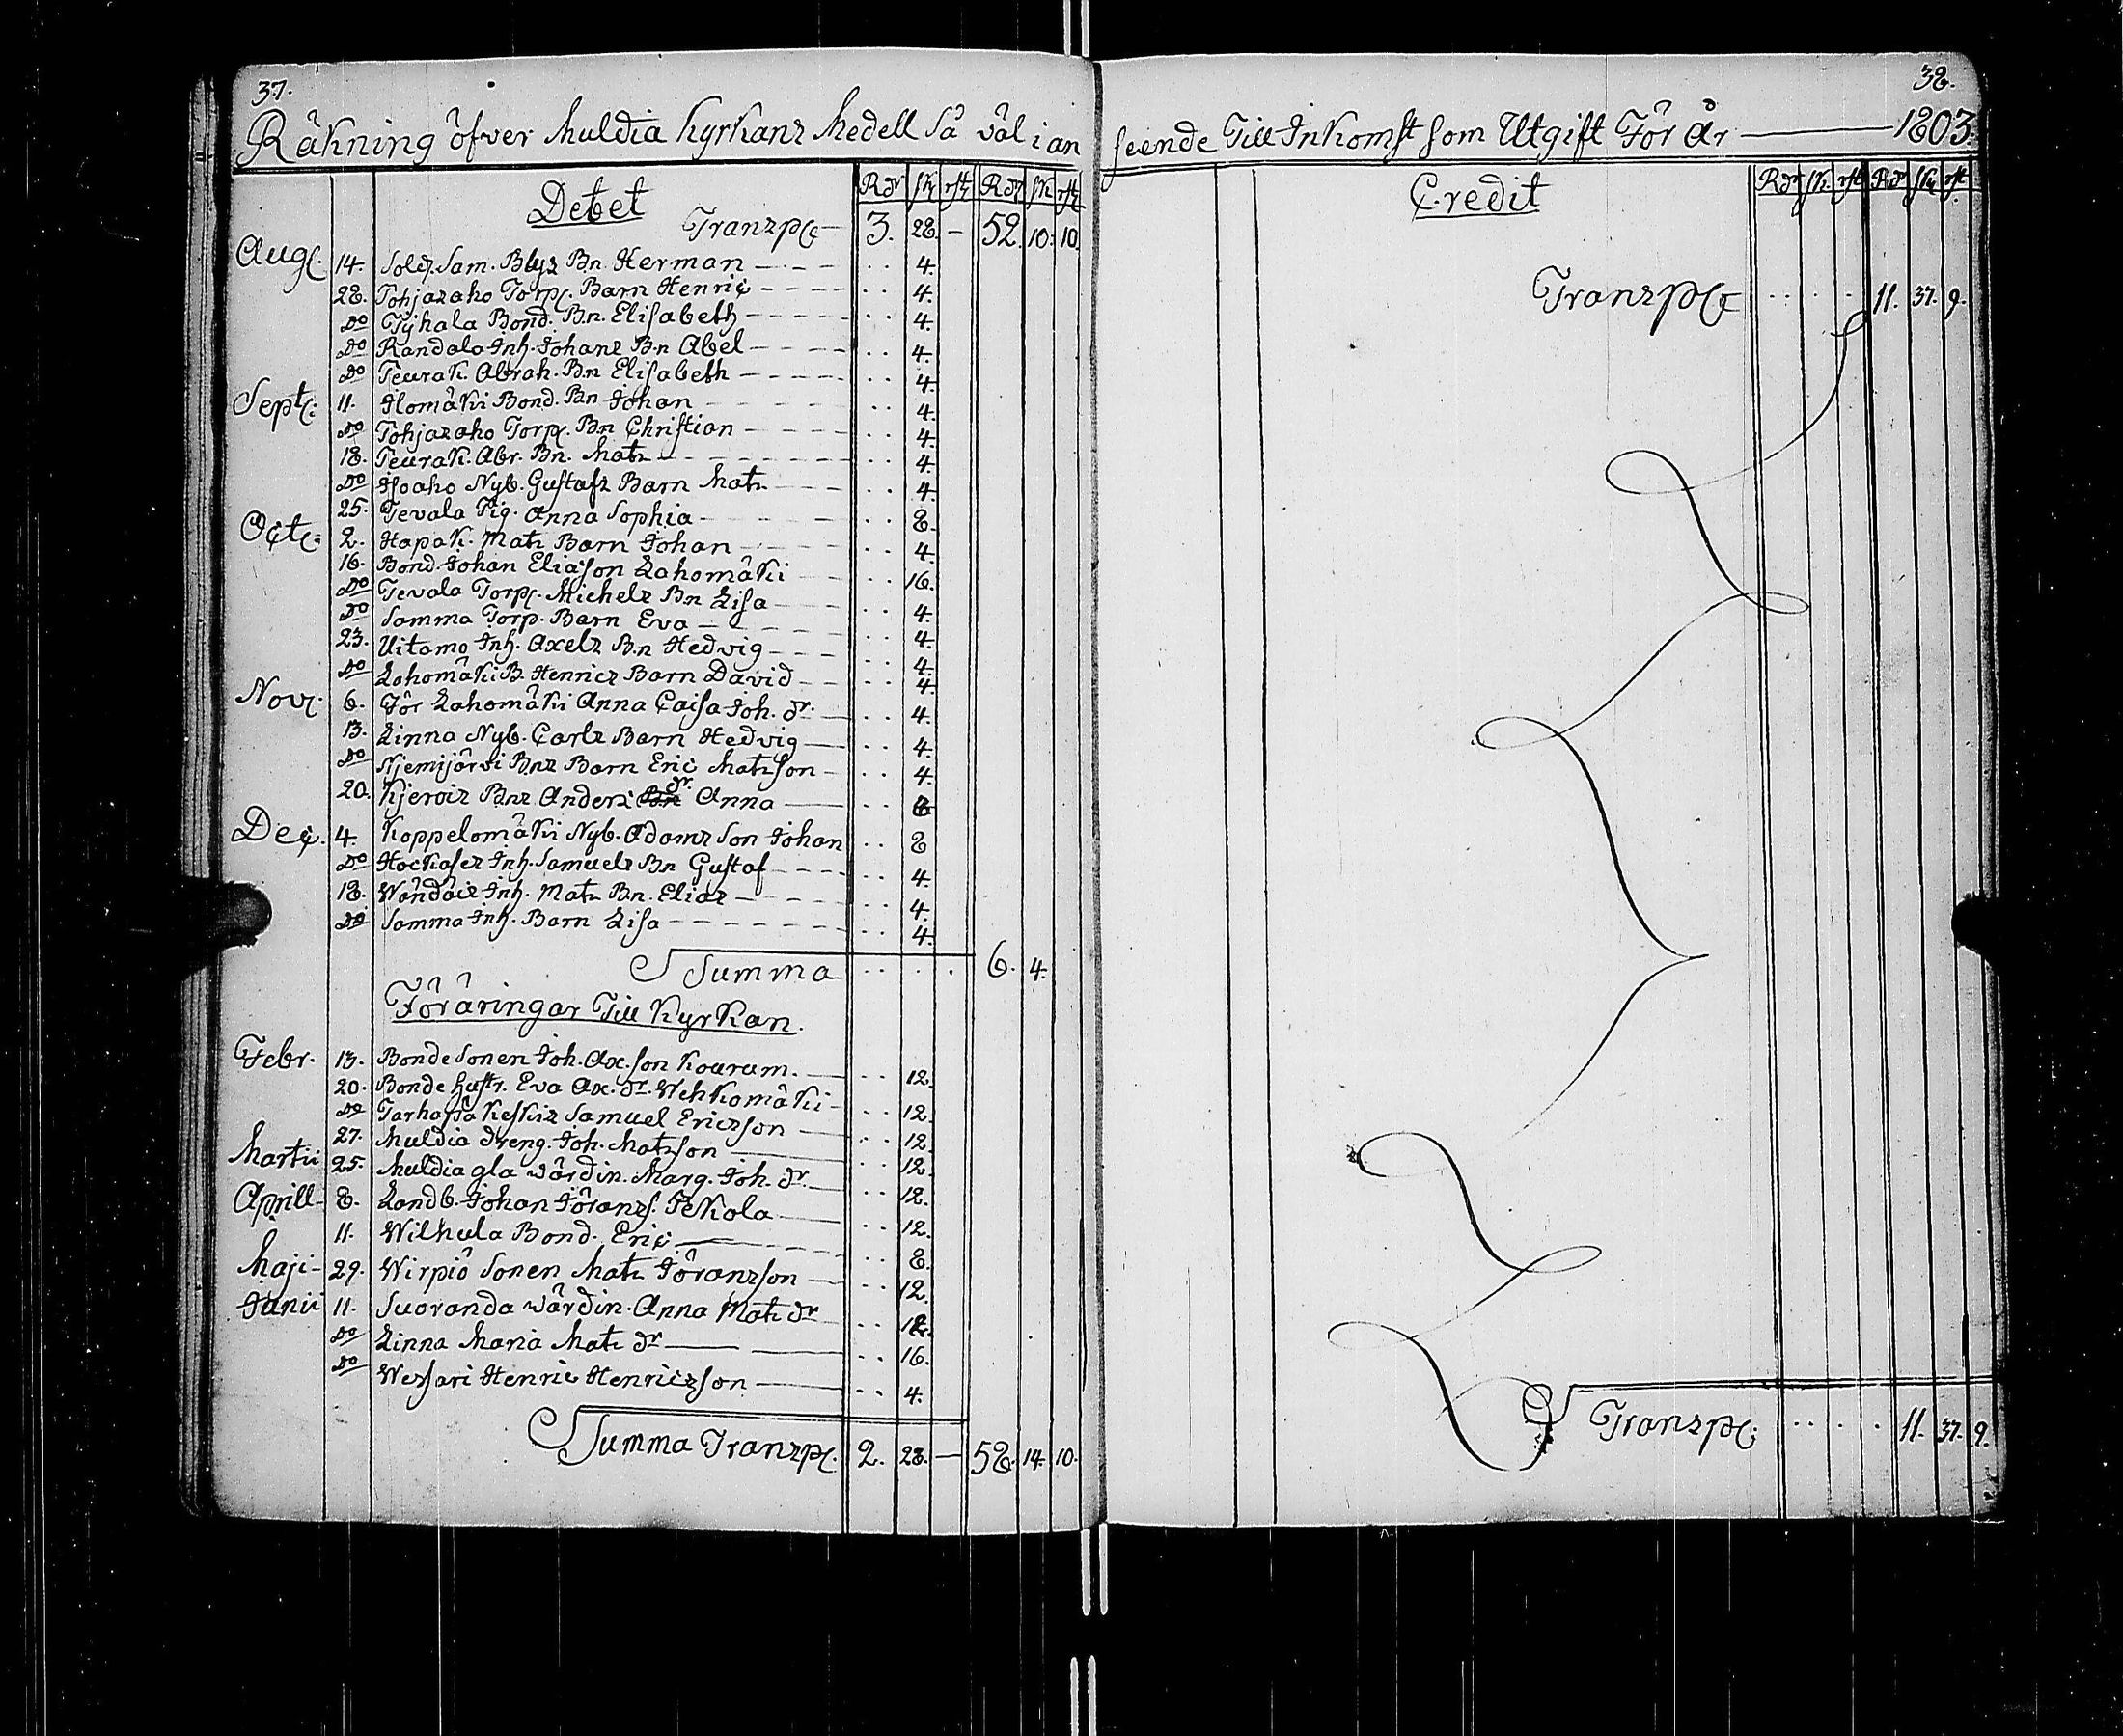 37.
Räkning öfver Muldia Kyrkans Medell Så väl i an
Debet
Rdr sk rst Rdr sk rst
Transpt 3. 28. - 52. 10. 10.
Aug. 14. Sold. Sam. Blyz Bn. Herman 4.
28. Pohjazaho Torp. Barn Henric 4.
Do Tyhala Bond. Bn. Elisabeth 4.
Do Randala Inh. Johans Bn Abel 4.
Do Peurak. Abrah. Bn Elisabeth 4.
Sept. 11. Ilomäki Bond. Bn Johan 4.
Do Pohjazaho Torp. Bn Christian 4.
18. Peurak. Abr. Bn. Mats 4.
Do Isoaho Nyb. Gustafs Barn Mats 4.
25. Tevala Pig. Anna Sophia 8.
Oct. 2. Hapak. Mats Barn Johan 4.
16. Bond. Johan Eliason Lahomäki 16.
Do Tevala Torp. Michels Bn Lisa 4.
Do Samma Torp. Barn Eva 4.
23. Uitamo Inh. Axels Bn Hedvig 4.
Do Lahomäki B. Henrics Barn David 4.
Nov. 6. För Lahomäki Anna Caisa Joh. dr. 4.
13. Linna Nyb. Carls Barn Hedvig 4.
Do Njemijärvi Bns Barn Eric Matsson 4.
20. Kjervis Bns Anders dr. Anna 8
Dec. 4. Koppelomäki Nyb. Adams Son Johan 8
Do Hockases Inh. Samuels Bn Gustaf 4.
18. Wändäis Inh. Mats Bn. Elias 4.
Do Samma Inh. Barn Lisa 4.
Summa 6. 4.
Föräringar Till Kyrkan.
Febr. 13. Bonde Sonen Joh. Ax.son Kouram. 12.
20. Bonde hustr. Eva Ax. dr. Wehkomäki 12.
Do Tarhapä Keskis Samuel Ericsson 12.
27. Muldia dreng. Joh. Matsson 12.
Martii 25. Muldia gla wärdin. Marg. Joh. dr. 12.
Aprill 8. Landb. Johan Jörans. Pekola 12.
11. Wilhula Bond. Eric 8.
Maji 29. Wirpiö Sonen Mats Jöransson 12.
Junii 11. Suoranda wärdin. Anna Mats dr 12.
Do Linna Maria Mats dr 16.
Do Wessari Henric Henricsson 4.
Summa Transpt. 2. 28. - 58. 14. 10.
38.
seende Till Inkomst som Utgift För År 1803.
Credit
Rdr sk rst Rdr sk rst
Transpt 11. 37. 9.
Transpt. 11. 37. 9.